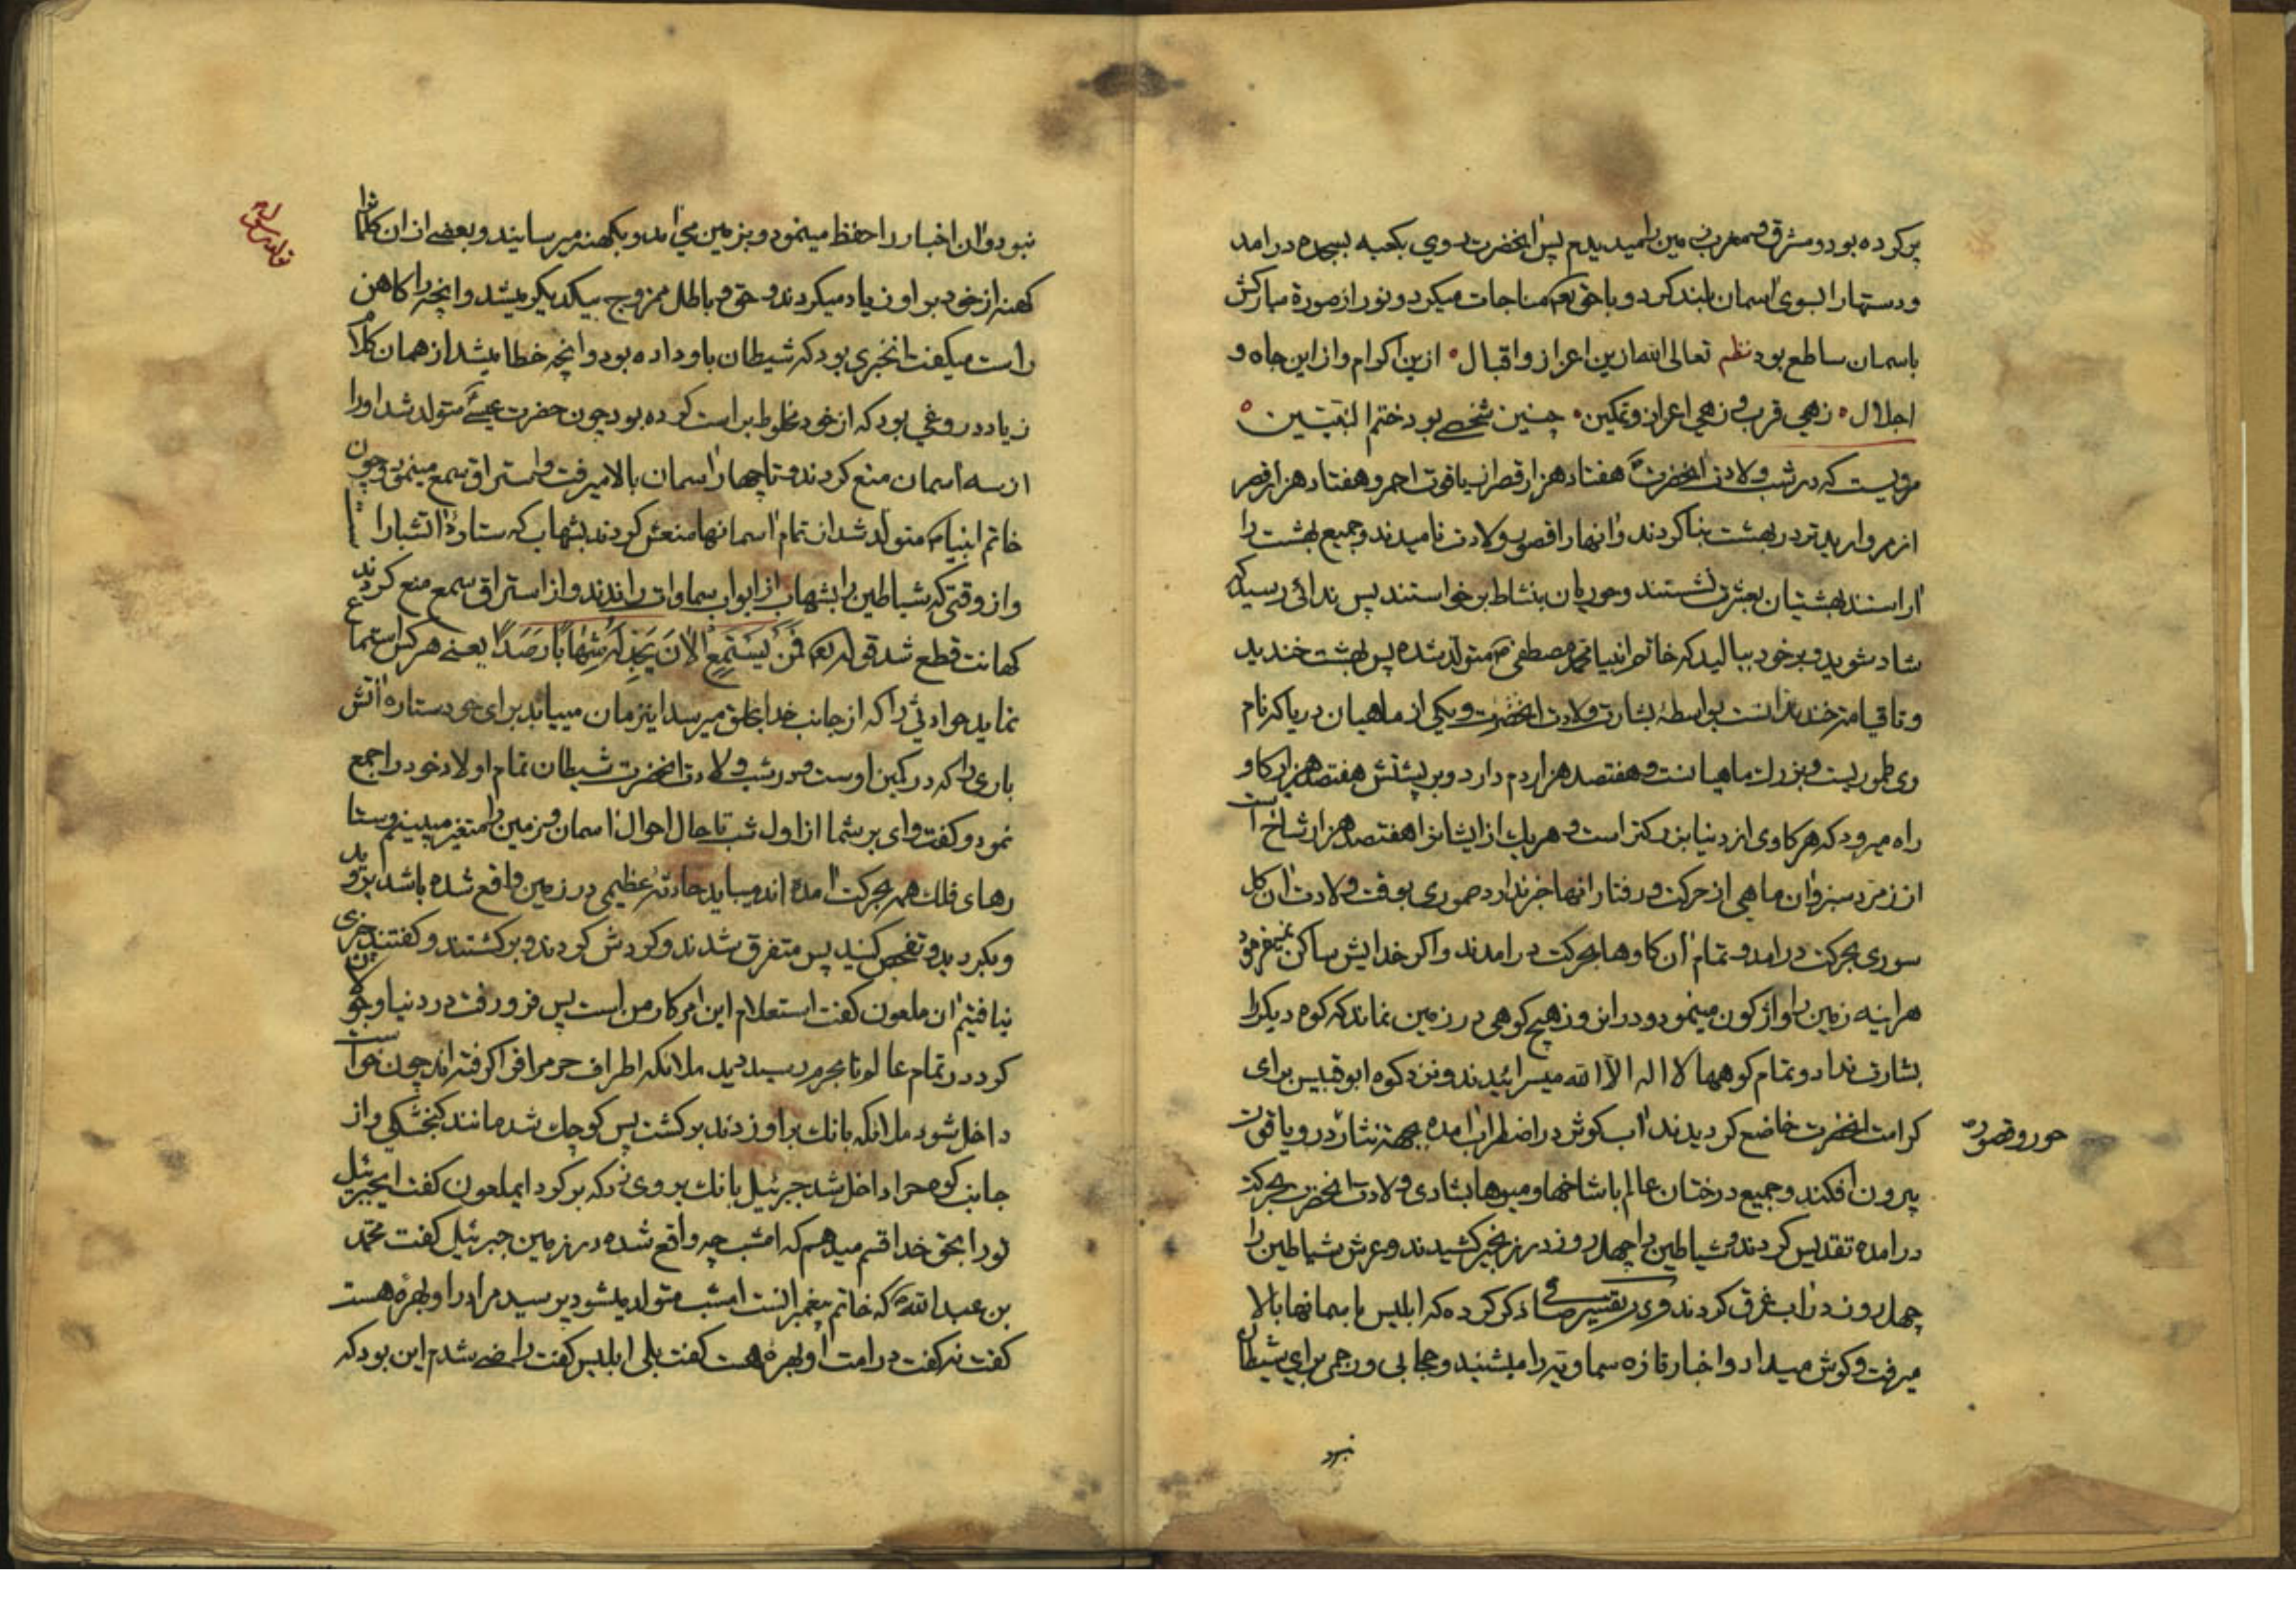 پر کرده بود و مشرق و مغرب زمین را میدیدم پس آنحضرت بسوی کعبه بسجده درامد
و دستها را بسوی آسمان بلند کرد و با حق تعم مناجات میکرد و نور از صورة مبارکش
باسمان ساطع بود نظم تعالی الله ازین اعزاز و اقبال ازین اکرام و از این جاه و
اجلال زهی قرب و زهی اعزاز و تمکین چنین شخصے بود ختم النبیّین
مرویست که در شب ولادت آنحضرت هفتاد هزار قصر از یاقوت احمر و هفتاد هزار قصر
از مروارید تر در بهشت بنا کردند و آنها را قصور ولادت نامیدند و جمیع بهشت را
آراستند بهشتیان بعشرت نشستند و حوریان بنشاط برخواستند پس ندائی رسید که
شاد شوید و بر خود ببالید که خاتم انبیا محمد مصطفی ص متولد شده پس بهشت خندید
و تا قیامت خندانست بواسطهٔ بشارت ولادت آنحضرت و یکی از ماهیان دریا که نام
وی طموریست و بزرك ماهیانست و هفتصد هزار دم دارد و بر پشتش هفتصد هزار کاو
راه میرود که هر کاوی از دنیا بزرکتر است و هر یك از ایشانرا هفتصد هزار شاخ است
از زمرّد سبز و آن ماهی از حرکت و رفتار آنها خبر ندارد صموری بوقت ولادت آن کل
سوری بحرکت درامد و تمام آن کاوها بحرکت درامدند و اکر خدایش ساکن نمیفرمود
هراینه زمین را واژکون مینمود و در انروز هیچ کوهی در زمین نماند که کوه دیکر را
بشارت نداد و تمام کوهها لا اله الا الله میسرائیدند و نزد کوه ابوقبیس برای
کرامت آنحضرت خاضع کردیدند آب کوثر در اضطراب آمده بجهة نثار در و یاقوت
حور و قصور
بیرون افکند و جمیع درختان عالم با شاخها و میوها بشادی ولادت آنحضرت بحرکت
درامده تقدیس کردند و شیاطین را چهل روز در زنجیر کشیدند و عرش شیاطین را
چهل روز در آب غرق کردند و در تفسیر صافی ذکر کرده که ابلیس باسمانها بالا
میرفت و کوش میداد و اخبار تازه سماویّه را میشنید و حجابی و رجمی برای شیطان
نبود
نبود و آن اخبار را حفظ مینمود و بزمین می آمد و بکهنه میرسانید و بعضے از ان کلماترا
کهنه از خود بر او زیاد میکردند و حق و باطل ممزوج بیکدیکر میشد و انچه را کاهن
راست میکفت انخبری بود که شیطان باو داده بود و انچه خطا میشد از همان کلام
زیاد دروغی بود که از خود مخلوط براست کرده بود چون حضرت عیسےٰ متولد شد اورا
از سه آسمان منع کردند و تا چهار آسمان بالا میرفت و استراق سمع مینمود و چون
خاتم انبیاء متولد شد از تمام آسمانها منعش کردند بشهاب که ستارهٔ آتشبار است
و از وقتی که شیاطین را بشهاب از ابواب سماوات راندند و از استراق سمع منع کردند
کهانت قطع شد قوله تعم فَمَن یَستَمِعِ الآنَ یَجِد لَهُ شِهَابًا رَصَدًا یعنے هر کس استماع
نماید حوادثی را که از جانب خدا بخلق میرسد اینزمان مییابد برای خود ستاره آتش
باری را که در کمین اوست و در شب ولادت آنحضرت شیطان تمام اولاد خود را جمع
نمود و کفت وای بر شما از اول شب تا حال احوال آسمان و زمین را متغیر میبینم و ستا
رهای فلك همه بحرکت آمده اند میباید حادثهٔ عظیمی در زمین واقع شده باشد بروید
و بکردید و تفحص کنید پس متفرق شدند و کردش کردند و برکشتند و کفتند چیزی
نیافتیم آن ملعون کفت استعلام این امر کار من است پس فرو رفت در دنیا و جولان
کرد در تمام عالم تا بحرم رسید دید ملائکه اطراف حرم را فرا کرفته اند چون خواست
داخل شود ملائکه بانك بر او زدند برکشت پس کوچك شد مانند کنجشکی و از
جانب کوه حرا داخل شد جبرئیل بانك بر وی زد که برکرد ایملعون کفت ایجبرئیل
تو را بحق خدا قسم میدهم که امشب چه واقع شده در زمین جبرئیل کفت محمّد
بن عبدالله که خاتم پیغمبرانست امشب متولد میشود پرسید مرا در او بهرهٔ هست
کفت نه کفت در امت او بهرهٔ هست کفت بلی ابلیس کفت راضے شدم این بود که